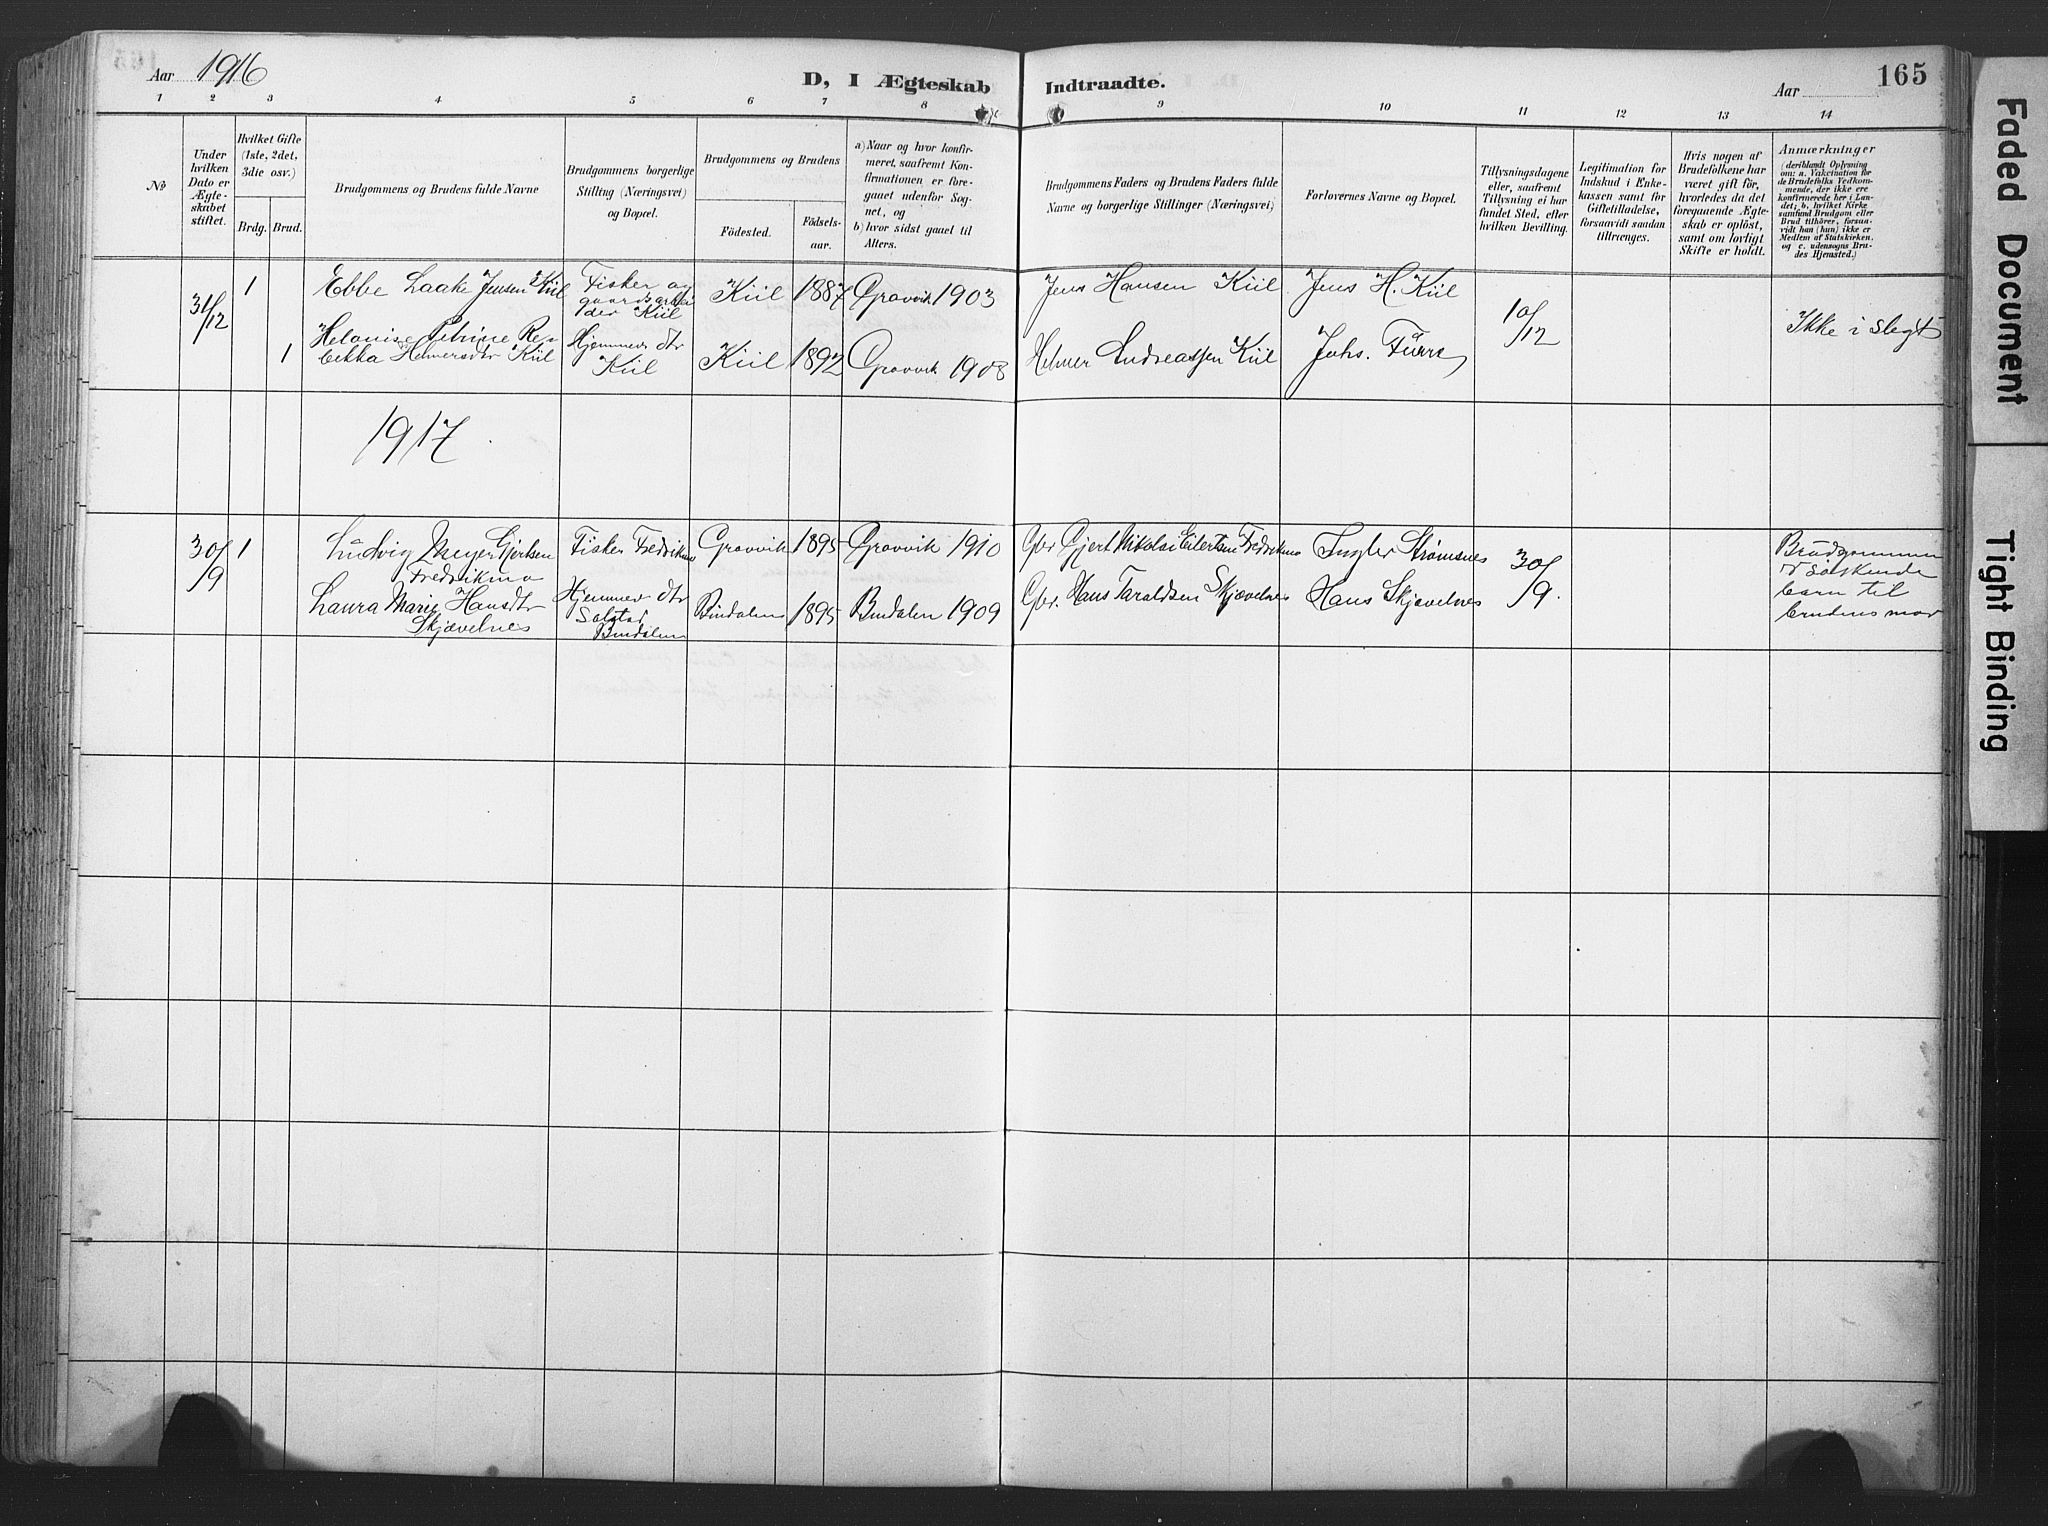 Aar 1916
D, I Ægteskab
Indtraadte.
Aar
165
1 2 3 4 5 6 7 8 9 10 11 12 13 14
No
Under
hvilken
Dato er
Ægte-
skabet
stiftet.
Hvilket Gifte
(1ste, 2det,
3die osv.)
Brdg. Brud.
Brudgommens og Brudens fulde Navne
Brudgommens borgerlige
Stilling (Næringsvei)
og Bopæl.
Brudgommens og Brudens
Födested.
Födsels-
aar.
a) Naar og hvor konfir-
meret, saafremt Kon-
firmationen er fore-
gaaet udenfor Sog-
net, og
b) hvor sidst gaaet til
Alters.
Brudgommens Faders og Brudens Faders fulde
Navne og borgerlige Stillinger (Næringsvei)
Forlovernes Navne og Bopæl.
Tillysningsdagene
eller, saafremt
Tillysning ei har
fundet Sted, efter
hvilken Bevilling.
Legitimation for
Indskud i Enke-
kassen samt for
Giftetilladelse,
forsaavidt saadan
tiltrænges.
Hvis nogen af
Brudefolkene har
været gift för,
hvorledes da det
foregaaende Ægte-
skab er oplöst,
samt om lovligt
Skifte er holdt.
Anmærkninger
(deriblandt Oplysning
om: a. Vakcination
for de Brudefolks Vedkom-
mende, der ikke ere
konfirmerede her i Lan-
det; b. hvilket Kirke
samfund Brudgom eller
Brud tilhörer, forsaa-
vidt han (hun) ikke er
Medlem af Statskirken,
og c. udensogns Bru-
des Hjemsted.)
31/12 1 Ebbe Laake Jensen Kiil
Fisker og
gaardsarbei
der Kiil
Kiil 1887 Gravvik 1903
Jens Hansen Kiil
Jens H. Kiil
10/12
Ikke i slegt
1 Helouise Petrine Re-
bekka Helmersdtr Kiil
Hjemmev dtr
Kiil
Kiil 1892 Gravvik 1908
Helmer Andreassen Kiil
Johs. Furre
1917
30/9 1 Ludvig Meyer Gjertsen
Fredriksmo
Fisker Fredriksmo
Gravvik 1895 Gravvik 1910
Gbr Gjert Nikolai Eilertsen Fredriksmo
Strømsnes
30/9.
Brudgommen
søskende
barn til
brudens mor
Laura Marie Hansdtr
Skjævelnes
Hjemmev dtr
Bindalen
Bindalen 1895 Bindalen 1909
Gbr. Hans Taraldsen Skjævelnes
Hans Skjævelnes
Faded Document
Tight Binding